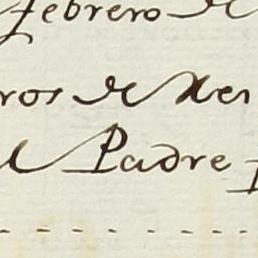 Febrero de
ros de Xer
el Padre